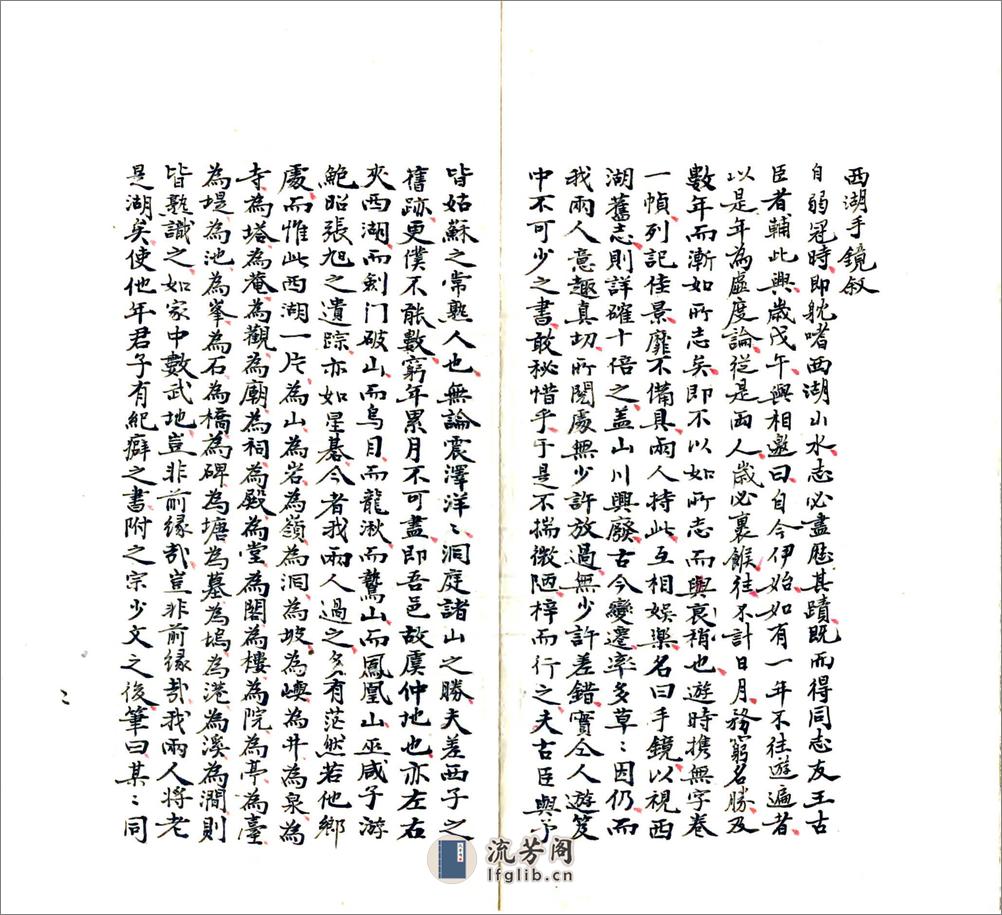 西湖手鏡叙
自弱冠時即躭嗜西湖山水志必盡歷其蹟既而得同志友王古
臣者輔此興歲戊午興相邀曰自今伊始如有一年不往遊遍者
以是年為虛度論從是兩人歲必裹餱往不計日月務窮名勝及
數年而漸如所志矣即不以如所志而興衰稍也遊時携無字卷
一幀列記佳景靡不備具兩人持此互相娛樂名曰手鏡以視西
湖舊志則詳確十倍之盖山川興廢古今變遷率多草〻因仍而
我兩人意趣真切所閱處無少許放過無少許差錯實令人遊笈
中不可少之書敢秘惜乎于是不揣微陋梓而行之夫古臣與予
皆姑蘇之常熟人也無論震澤洋〻洞庭諸山之勝夫差西子之
舊跡更僕不能數窮年累月不可盡即吾邑故虞仲地也亦左右
夾西湖而劍门破山而烏目而龍湫而鷲山而鳳凰山巫咸子游
鮑昭張旭之遺踪亦如星碁今者我兩人過之多有茫然若他鄉
處而惟此西湖一片為山為岩為嶺為洞為坡為嶼為井為泉為
寺為塔為菴為觀為廟為祠為殿為堂為閣為樓為院為亭為臺
為堤為池為峯為石為橋為碑為塘為墓為塢為港為溪為澗則
皆熟識之如家中數武地豈非前縁哉豈非前縁哉我兩人將老
是湖矣使他年君子有紀癖之書附之宗少文之後筆曰某〻同
二
流芳阁
lfglib.cn